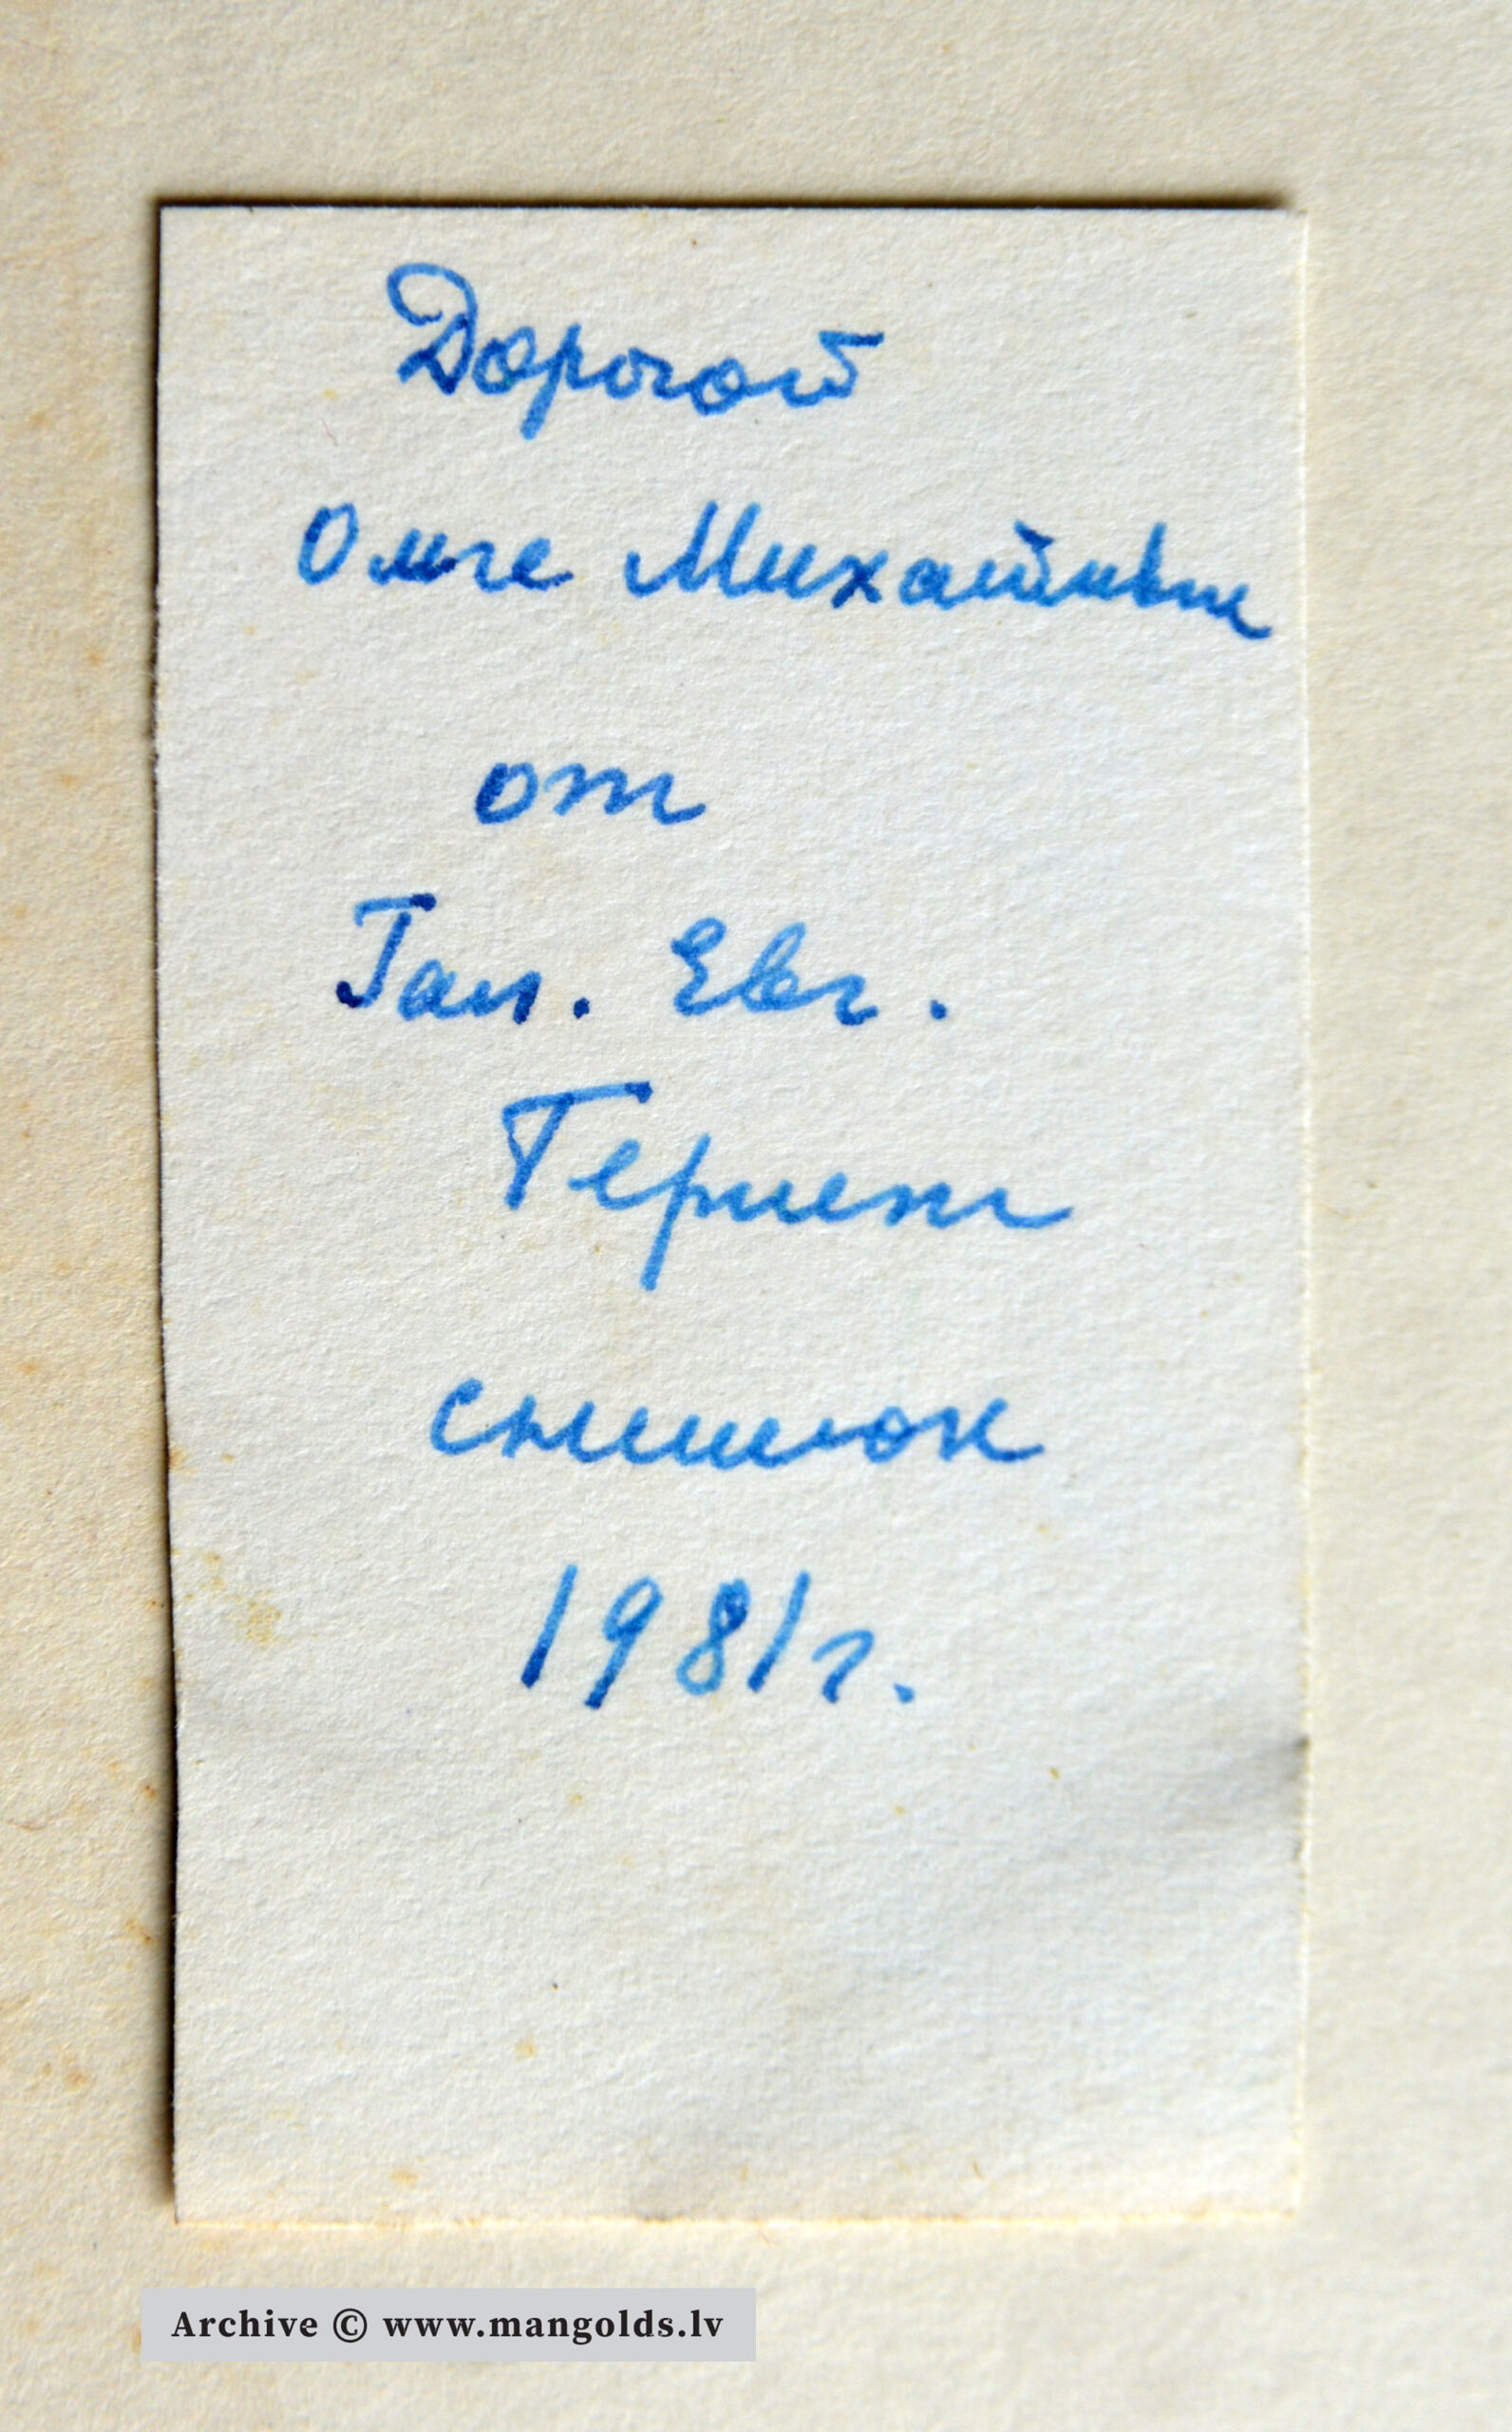 Дорогой
Ольге Михайловне
от
Гал. Евг.
Терпет
снимок
1981 г.
Archive © www.mangolds.lv